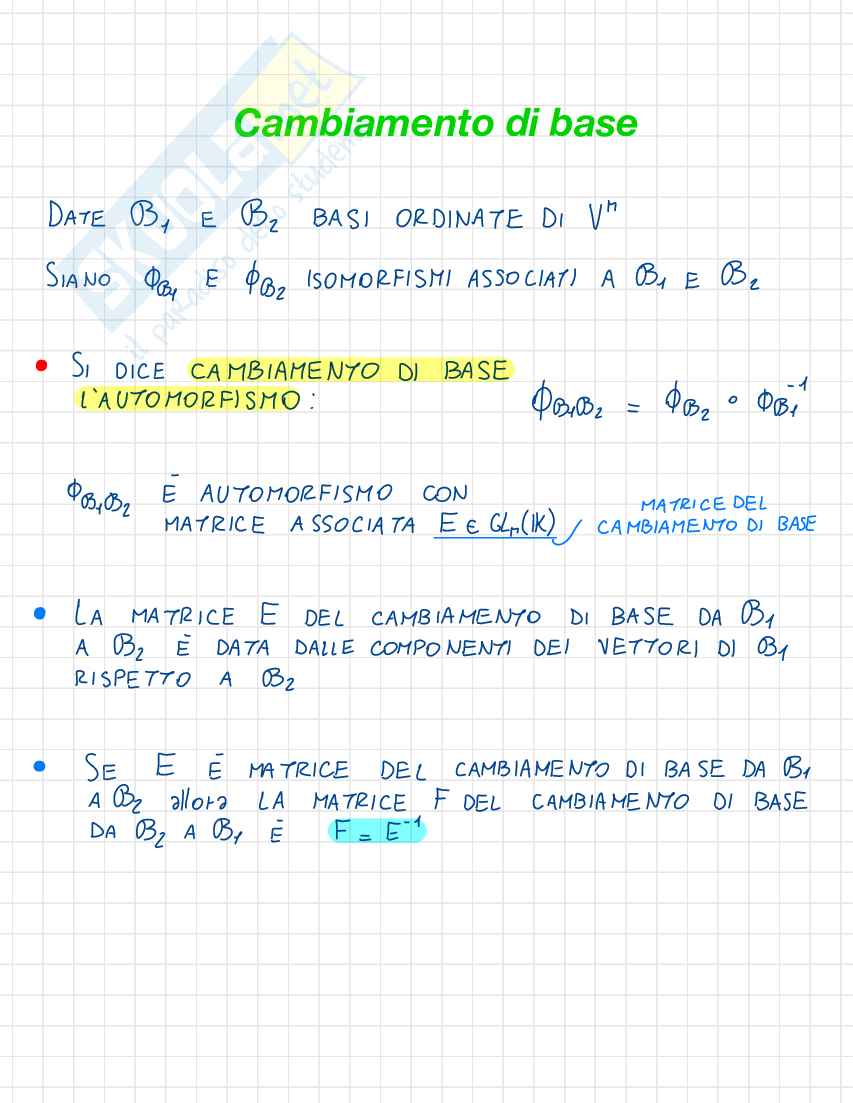 SKUOLA.net
il paradiso dello studente
Cambiamento di base
DATE ℬ₁ E ℬ₂ BASI ORDINATE DI Vⁿ
SIANO ϕ_ℬ₁ E ϕ_ℬ₂ ISOMORFISMI ASSOCIATI A ℬ₁ E ℬ₂
• SI DICE CAMBIAMENTO DI BASE
L'AUTOMORFISMO:
ϕ_ℬ₁ℬ₂ = ϕ_ℬ₂ ∘ ϕ_ℬ₁⁻¹
ϕ_ℬ₁ℬ₂ È AUTOMORFISMO CON
MATRICE ASSOCIATA E ∈ GLₙ(𝕂)
MATRICE DEL
CAMBIAMENTO DI BASE
• LA MATRICE E DEL CAMBIAMENTO DI BASE DA ℬ₁
A ℬ₂ È DATA DALLE COMPONENTI DEI VETTORI DI ℬ₁
RISPETTO A ℬ₂
• SE E È MATRICE DEL CAMBIAMENTO DI BASE DA ℬ₁
A ℬ₂ allora LA MATRICE F DEL CAMBIAMENTO DI BASE
DA ℬ₂ A ℬ₁ È F = E⁻¹